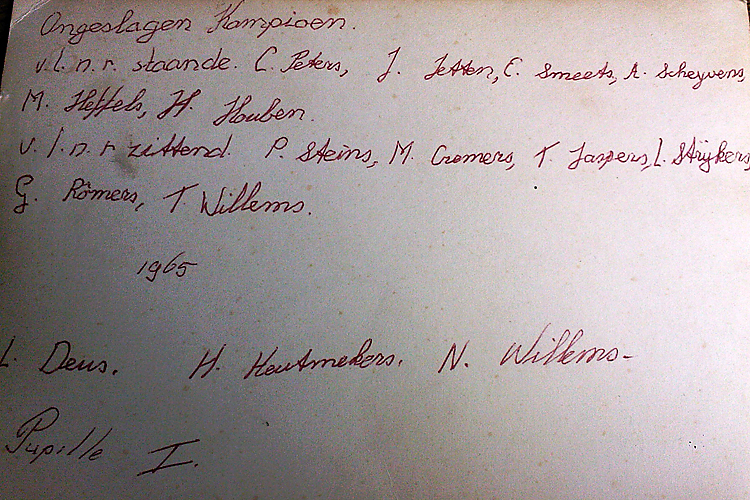 Ongeslagen Kampioen.
v.l.n.r. staande. C. Peters, J. Jetten, E. Smeets, A. Scheyvens,
M. Heffels, H. Houben.
v.l.n.r zittend. P. Steins, M. Cremers, T. Jaspers, L. Strijkers,
G. Römers, T Willems.
1965
L. Deus. H. Houtmekers. N. Willems-
Pupille I.